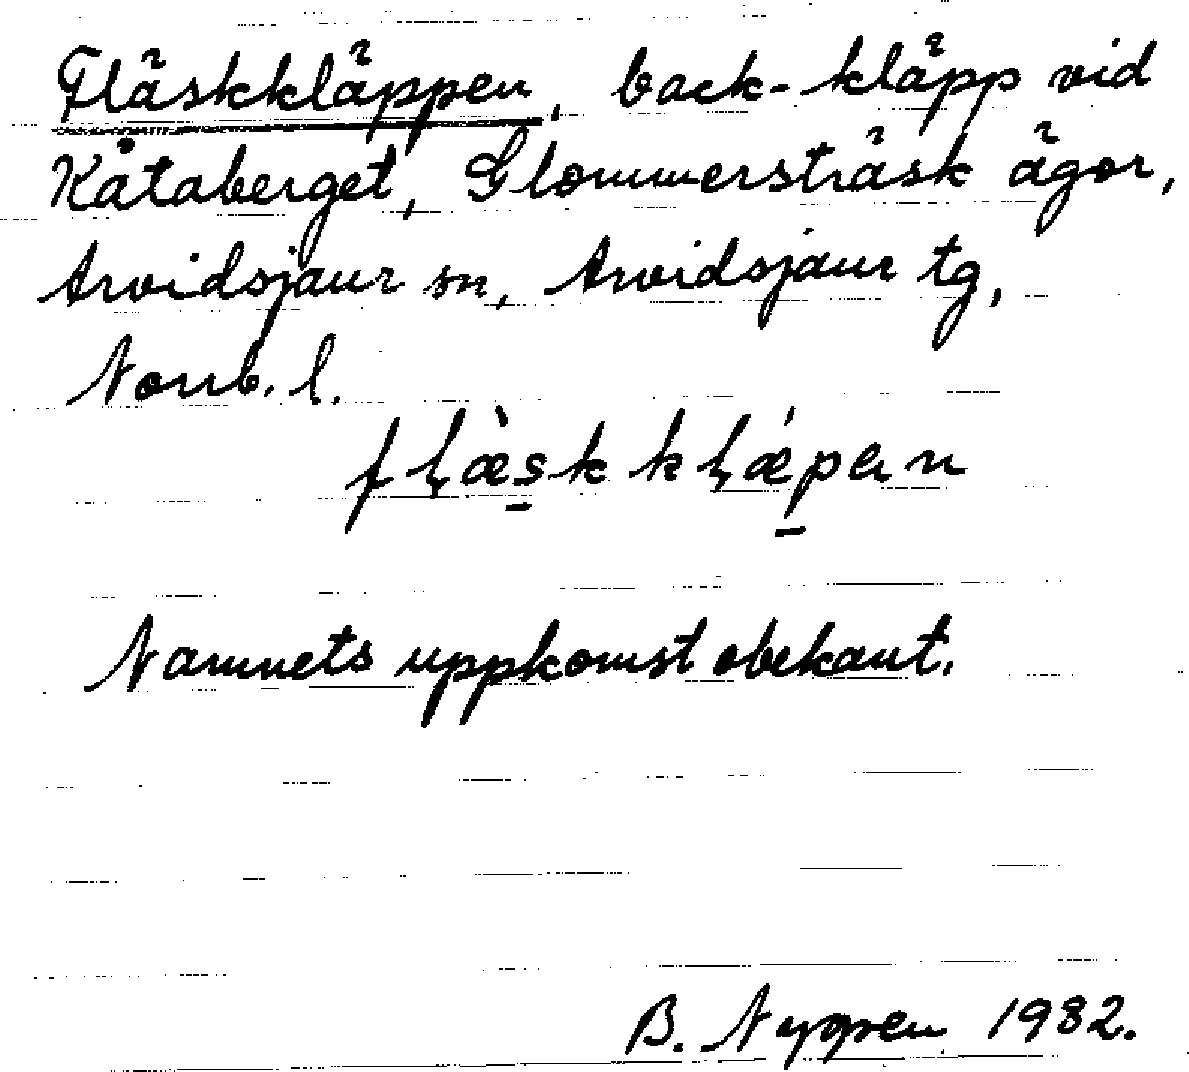 Fläskkläppen, back-kläpp vid
Kåtaberget, Glommersträsk ägor,
Arvidsjaur sn, Arvidsjaur tg,
Norrb. l.
fḷæ̀s̱kkḷǽp̱en
Namnets uppkomst obekant.
B. Nygren 1982.